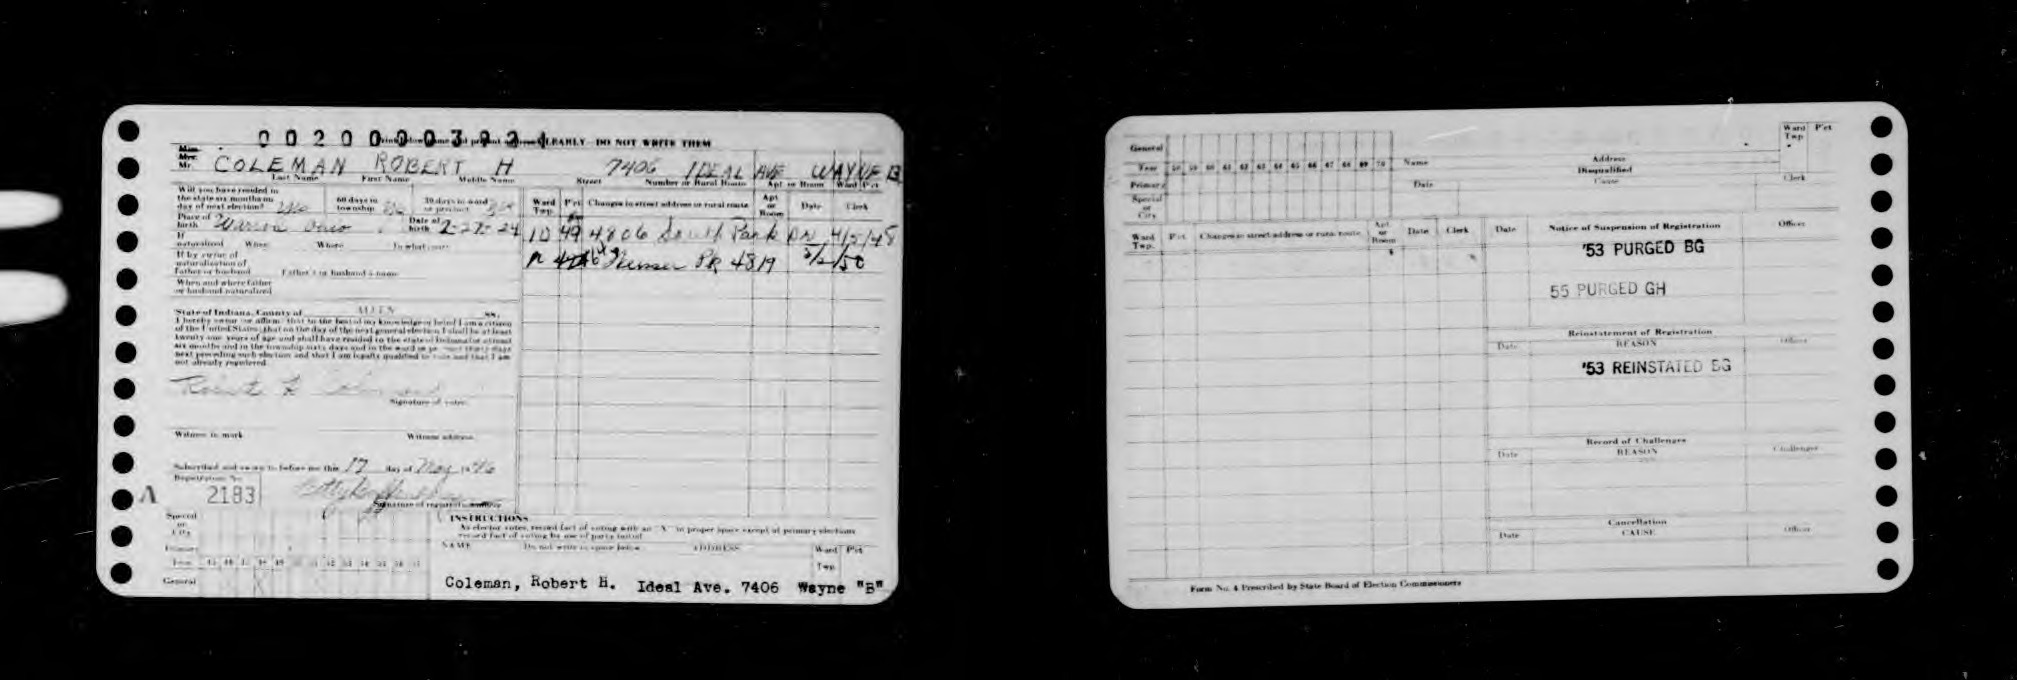 0020000393
CLEARLY - DO NOT WRITE THEM
Miss
Mrs.
Mr. COLEMAN ROBERT H 7406 IDEAL AVE WAYNE B
Last Name First Name Middle Name Street Number or Rural Route Apt or Room Ward Pct
Will you have resided in
the state six months on
day of next election? Yes
60 days in
township
30 days in ward
or precinct
Place of
birth Warren Ohio
Date of
birth 2-27-24
If
naturalized When Where In what court
If by virtue of
naturalization of
father or husband Father's or husband's name
When and where father
or husband naturalized
State of Indiana, County of ALLEN ss.
I hereby swear (or affirm) that to the best of my knowledge or belief I am a citizen
of the United States; that on the day of the next general election I shall be at least
twenty-one years of age and shall have resided in the state of Indiana for at least
six months and in the township sixty days and in the ward or precinct thirty days
next preceding such election and that I am legally qualified to vote and that I am
not already registered.
Robert H Coleman
Signature of voter
Witness to mark Witness address
Subscribed and sworn to before me this 17 day of May 1946
Registration No.
A 2183
Signature of registration officer
Ward
Twp. Pct Changes in street address or rural route Apt
or
Room Date Clerk
10 49 4806 South Park DR 4/5/48
PR 4819 50
Special
or
City
Primary
Year
General
INSTRUCTIONS
As elector votes, record fact of voting with an "X" in proper space except at primary elections
record fact of voting by use of party initial
NAME Do not write in space below ADDRESS Ward
Twp. Pct
Coleman, Robert H. Ideal Ave. 7406 Wayne "B"
General
Year 58 59 60 61 62 63 64 65 66 67 68 69 70
Primary
Special
or
City
Name Address Ward
Twp Pct
Disqualified
Date Cause Clerk
Ward
Twp. Pct. Changes in street address or rural route Apt
or
Room Date Clerk
Date Notice of Suspension of Registration Officer
'53 PURGED BG
55 PURGED GH
Reinstatement of Registration
Date REASON Officer
'53 REINSTATED BG
Record of Challenges
Date REASON Challenger
Cancellation
Date CAUSE Officer
Form No. 4 Prescribed by State Board of Election Commissioners